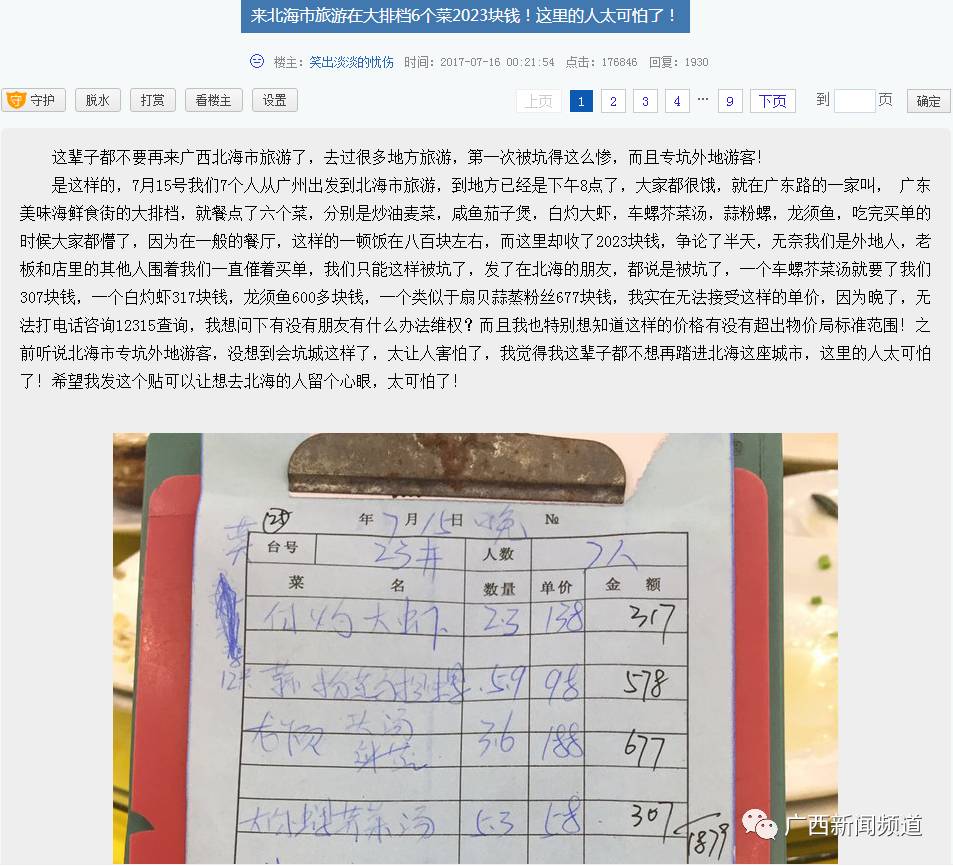 来北海市旅游在大排档6个菜2023块钱！这里的人太可怕了！
楼主：笑出淡淡的忧伤 时间：2017-07-16 00:21:54 点击：176846 回复：1930
守护 脱水 打赏 看楼主 设置 上页 1 2 3 4 … 9 下页 到 页 确定
这辈子都不要再来广西北海市旅游了，去过很多地方旅游，第一次被坑得这么惨，而且专坑外地游客！
是这样的，7月15号我们7个人从广州出发到北海市旅游，到地方已经是下午8点了，大家都很饿，就在广东路的一家叫， 广东
美味海鲜食街的大排档，就餐点了六个菜，分别是炒油麦菜，咸鱼茄子煲，白灼大虾，车螺芥菜汤，蒜粉螺，龙须鱼，吃完买单的
时候大家都懵了，因为在一般的餐厅，这样的一顿饭在八百块左右，而这里却收了2023块钱，争论了半天，无奈我们是外地人，老
板和店里的其他人围着我们一直催着买单，我们只能这样被坑了，发了在北海的朋友，都说是被坑了，一个车螺芥菜汤就要了我们
307块钱，一个白灼虾317块钱，龙须鱼600多块钱，一个类似于扇贝蒜蒸粉丝677块钱，我实在无法接受这样的单价，因为晚了，无
法打电话咨询12315查询，我想问下有没有朋友有什么办法维权？而且我也特别想知道这样的价格有没有超出物价局标准范围！之
前听说北海市专坑外地游客，没想到会坑城这样了，太让人害怕了，我觉得我这辈子都不想再踏进北海这座城市，这里的人太可怕
了！希望我发这个贴可以让想去北海的人留个心眼，太可怕了！
年 7月15日 晚 №
台号 23井 人数 7人
菜 名 数量 单价 金 额
白灼大虾 2.3 138 317
5.9 98 578
3.6 188 677
芥菜汤 5.3 58 307
1879
广西新闻频道